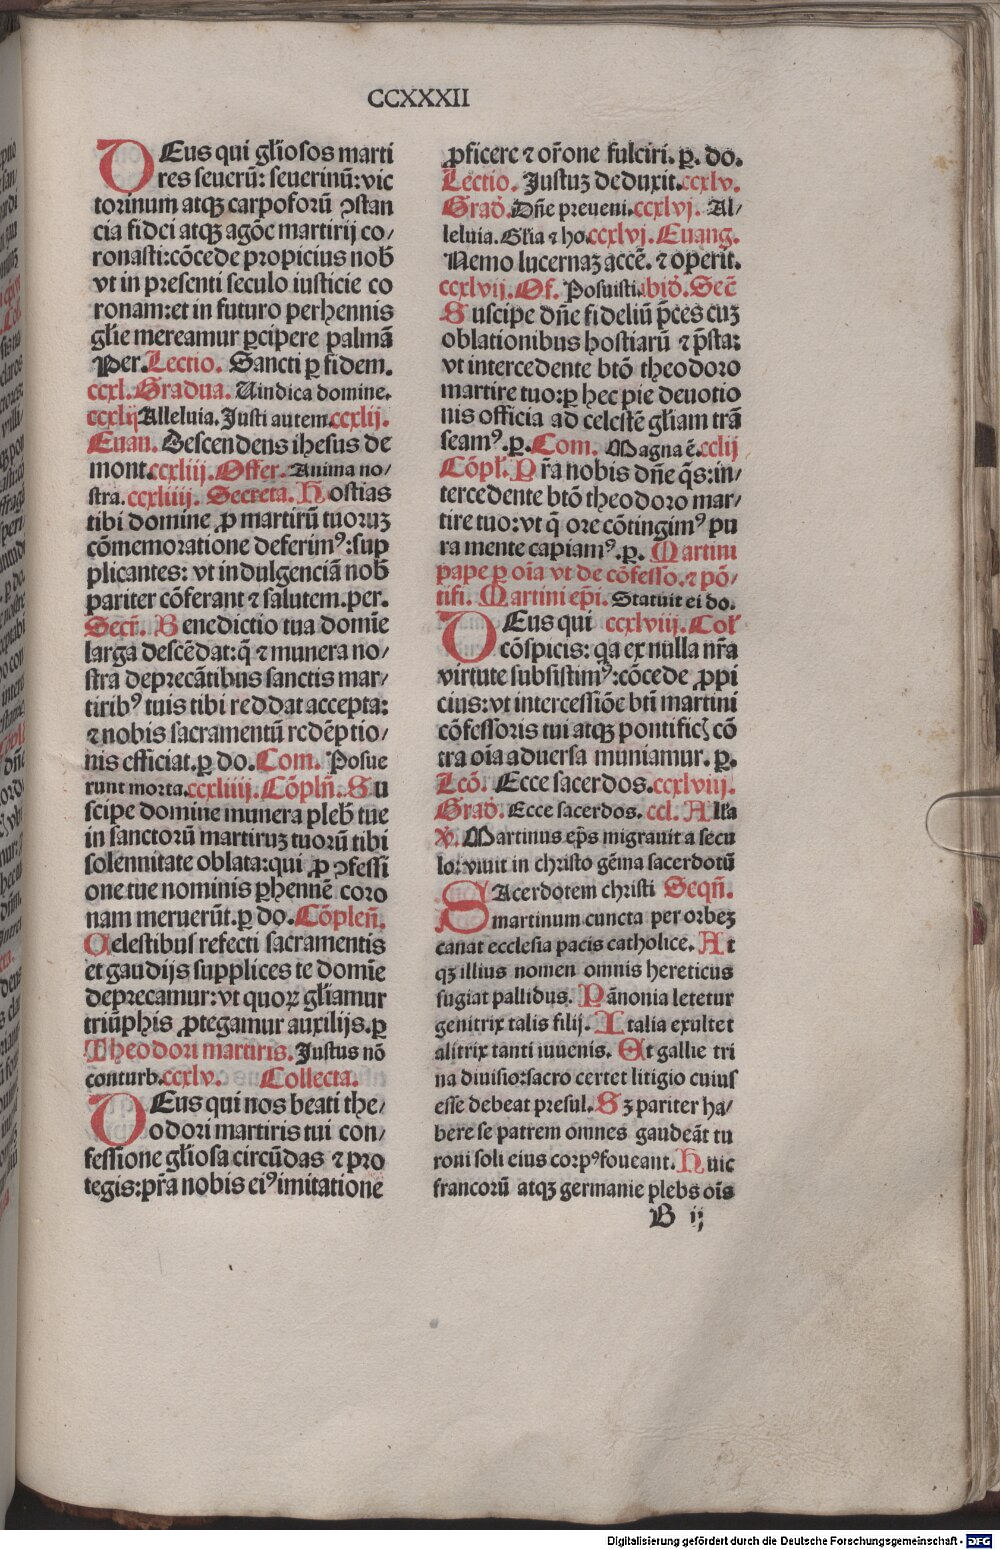 CCXXXII
DEus qui gl̄iosos marti
res seuerū: seuerinū: vic
torinum atqꝫ carpoforū ꝯstan
cia fidei atqꝫ agōe martirij co/
ronasti: cōcede propicius nob̄
vt in presenti seculo iusticie co
ronam: et in futuro perhennis
glīe mereamur ꝑcipere palmā
Per. Lectio. Sancti ꝑ fidem.
ccxl. Gradua. Uindica domine.
ccxlij Alleluia. Justi autem. ccxlij.
Euan. Descendens ihesus de
mont. ccxliij. Offer. Anima no/
stra. ccxliiij. Secreta. Hostias
tibi domine ꝓ martirū tuoruꝫ
cōmemoratione deferimꝰ: sup
plicantes: vt indulgenciā nob̄
pariter cōferant ⁊ salutem. per.
Secr̄. Benedictio tua domīe
larga descēdat: q̄ ⁊ munera no/
stra deprecātibus sanctis mar/
tiribꝰ tuis tibi reddat accepta:
⁊ nobis sacramentū redēptio/
nis efficiat. ꝑ do. Com. Posue
runt morta. ccxliiij. Cōpleñ. Su
scipe domine munera pleb̄ tue
in sanctorū martiruꝫ tuorū tibi
solennitate oblata: qui ꝓ ꝯfessi
one tue nominis ꝑhennē coro
nam meruerūt. ꝑ do. Cōpleñ.
Celestibus refecti sacramentis
et gaudijs supplices te domīe
deprecamur: vt quoꝝ gl̄iamur
triūphis ꝓtegamur auxilijs. ꝑ
Theodori martiris. Justus nō
conturb. ccxlv. Collecta.
DEus qui nos beati the/
odori martiris tui con/
fessione gl̄iosa circūdas ⁊ pro
tegis: pr̄a nobis eiꝰ imitatione
ꝓficere ⁊ or̄one fulciri. ꝑ. do.
Lectio. Justuꝫ deduxit. ccxlv.
Grad̄. Dn̄e preueni. ccxlvj. Al/
leluia. Gl̄ia ⁊ ho. ccxlvj. Euang.
Nemo lucernaꝫ accē. ⁊ operit.
ccxlvij. Of. Posuisti. ibid̄. Sec̄
Suscipe dn̄e fideliū p̄ces cuꝫ
oblationibus hostiarū ⁊ p̄sta:
vt intercedente btō theodoro
martire tuo: ꝑ hec pie deuotio
nis officia ad celestē gl̄iam trā
seamꝰ. ꝑ. Com. Magna ē. cclij
Cōpl̄. Pr̄a nobis dn̄e q̄s: in/
tercedente btō theodoro mar/
tire tuo: vt q̄ ore cōtingimꝰ pu
ra mente capiamꝰ. ꝑ. Martini
pape ꝑ oīa vt de cōfesso. ⁊ pō/
tifi. Martini epī. Statuit ei do.
DEus qui ccxlviii. Col̄
cōspicis: qa ex nulla nr̄a
virtute subsistimꝰ: cōcede ꝓpi
cius: vt intercessiōe btī martini
cōfessoris tui atqꝫ pontific̄ cō
tra oīa aduersa muniamur. ꝑ.
Lcō. Ecce sacerdos. ccxlviij.
Grad̄. Ecce sacerdos. ccl. All̄a
℣. Martinus ep̄s migrauit a secu
lo: viuit in christo gēma sacerdotū
SAcerdotem christi Seqn̄.
martinum cuncta per orbeꝫ
canat ecclesia pacis catholice. At
qꝫ illius nomen omnis hereticus
fugiat pallidus. Pānonia letetur
genitrix talis filij. Italia exultet
alitrix tanti iuuenis. Et gallie tri
na diuisio: sacro certet litigio cuius
esse debeat presul. Sꝫ pariter ha/
bere se patrem omnes gaudeāt tu
roni soli eius corpꝰ foueant. Huic
francorū atqꝫ germanie plebs oīs
B ij
Digitalisierung gefördert durch die Deutsche Forschungsgemeinschaft - DFG